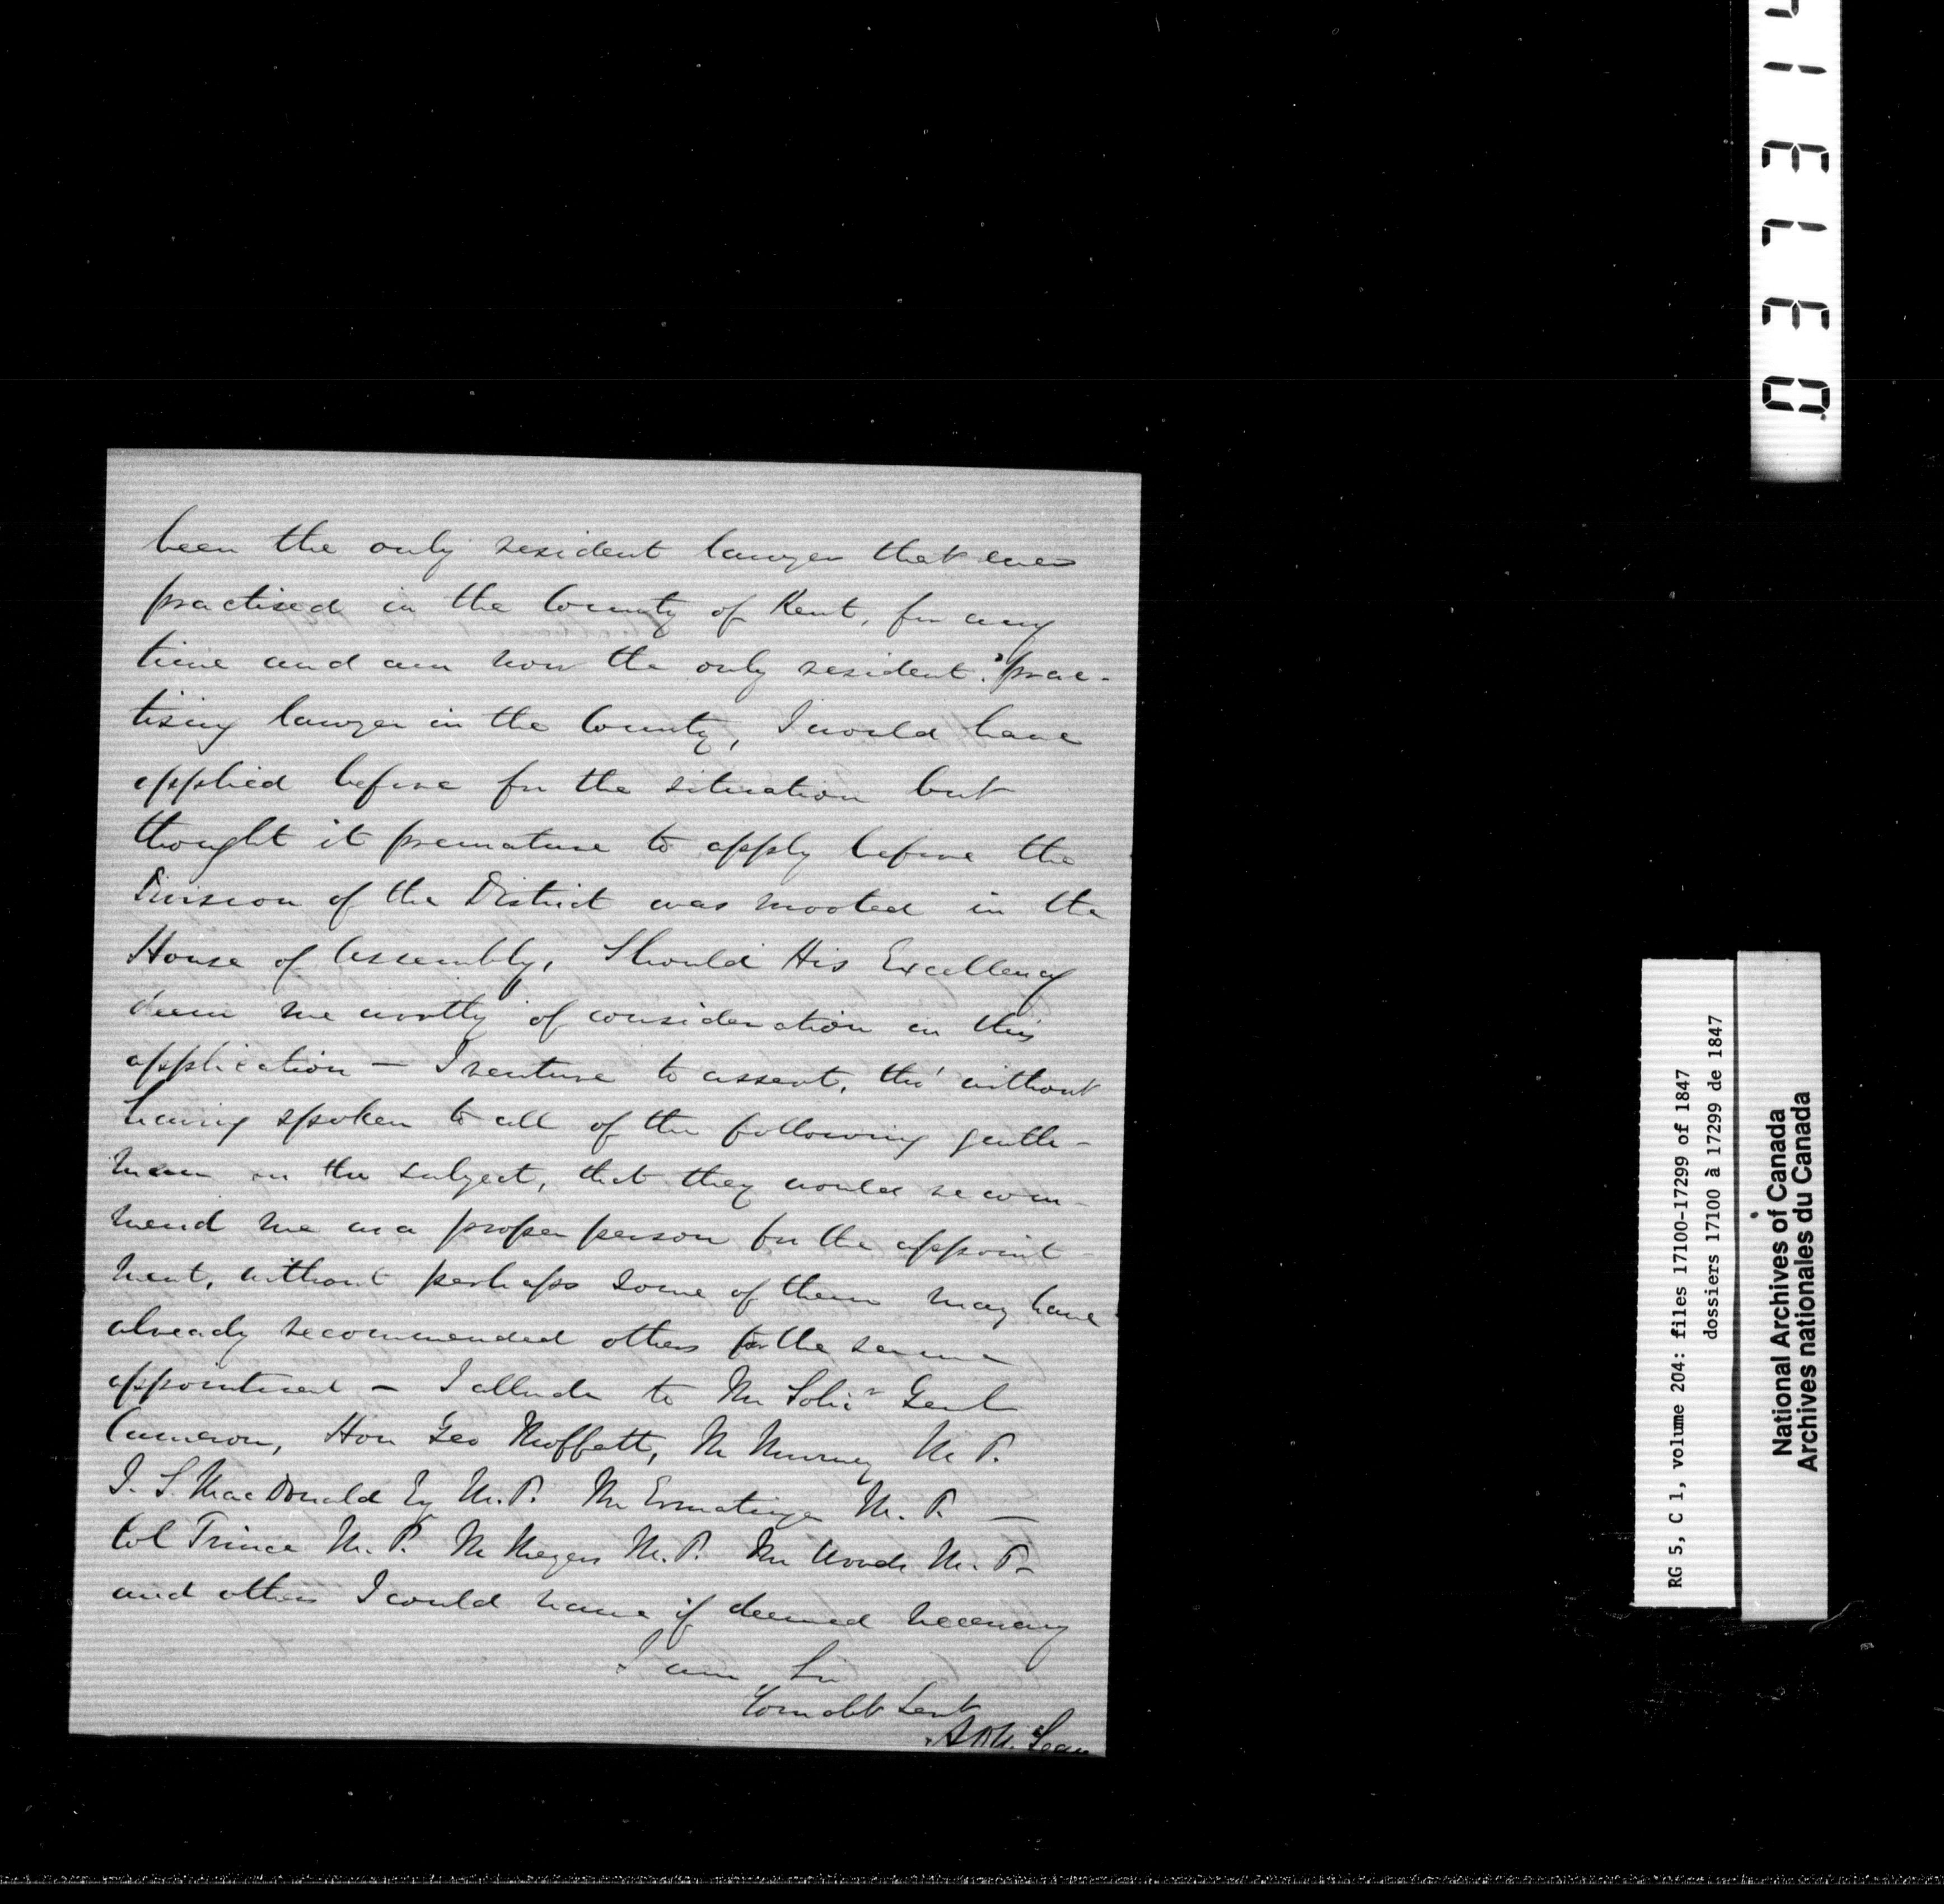 been the only resident lawyer that ever
practised in the County of Kent, for any
time and am now the only resident prac-
tising lawyer in the County, I would have
applied before for the situation but
thought it premature to apply before the
Division of the District was mooted in the
House of Assembly, Should His Excellency
deem me worthy of consideration in this
application — I venture to assert, tho' without
having spoken to all of the following gentle-
men on the subject, that they would recom-
mend me as a proper person for the appoint-
ment, without perhaps some of them may have
already recommended others for the same
appointment — I allude to Mr Solir Genl
Cameron, Hon Geo Moffatt, Mr Murney M. P.
J. S. MacDonald Esq M. P. Mr Ermatinger M. P. —
Col Prince M. P. Mr Meyers M. P. Mr Woods M. P—
and others I could name if deemed necessary
I am Sir
Your obt Servt
A D McLean
RG 5, C 1, volume 204: files 17100-17299 of 1847
dossiers 17100 à 17299 de 1847
National Archives of Canada
Archives nationales du Canada